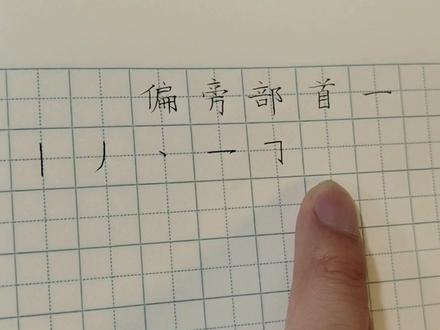 偏旁部首一
丨丿丶一㇕